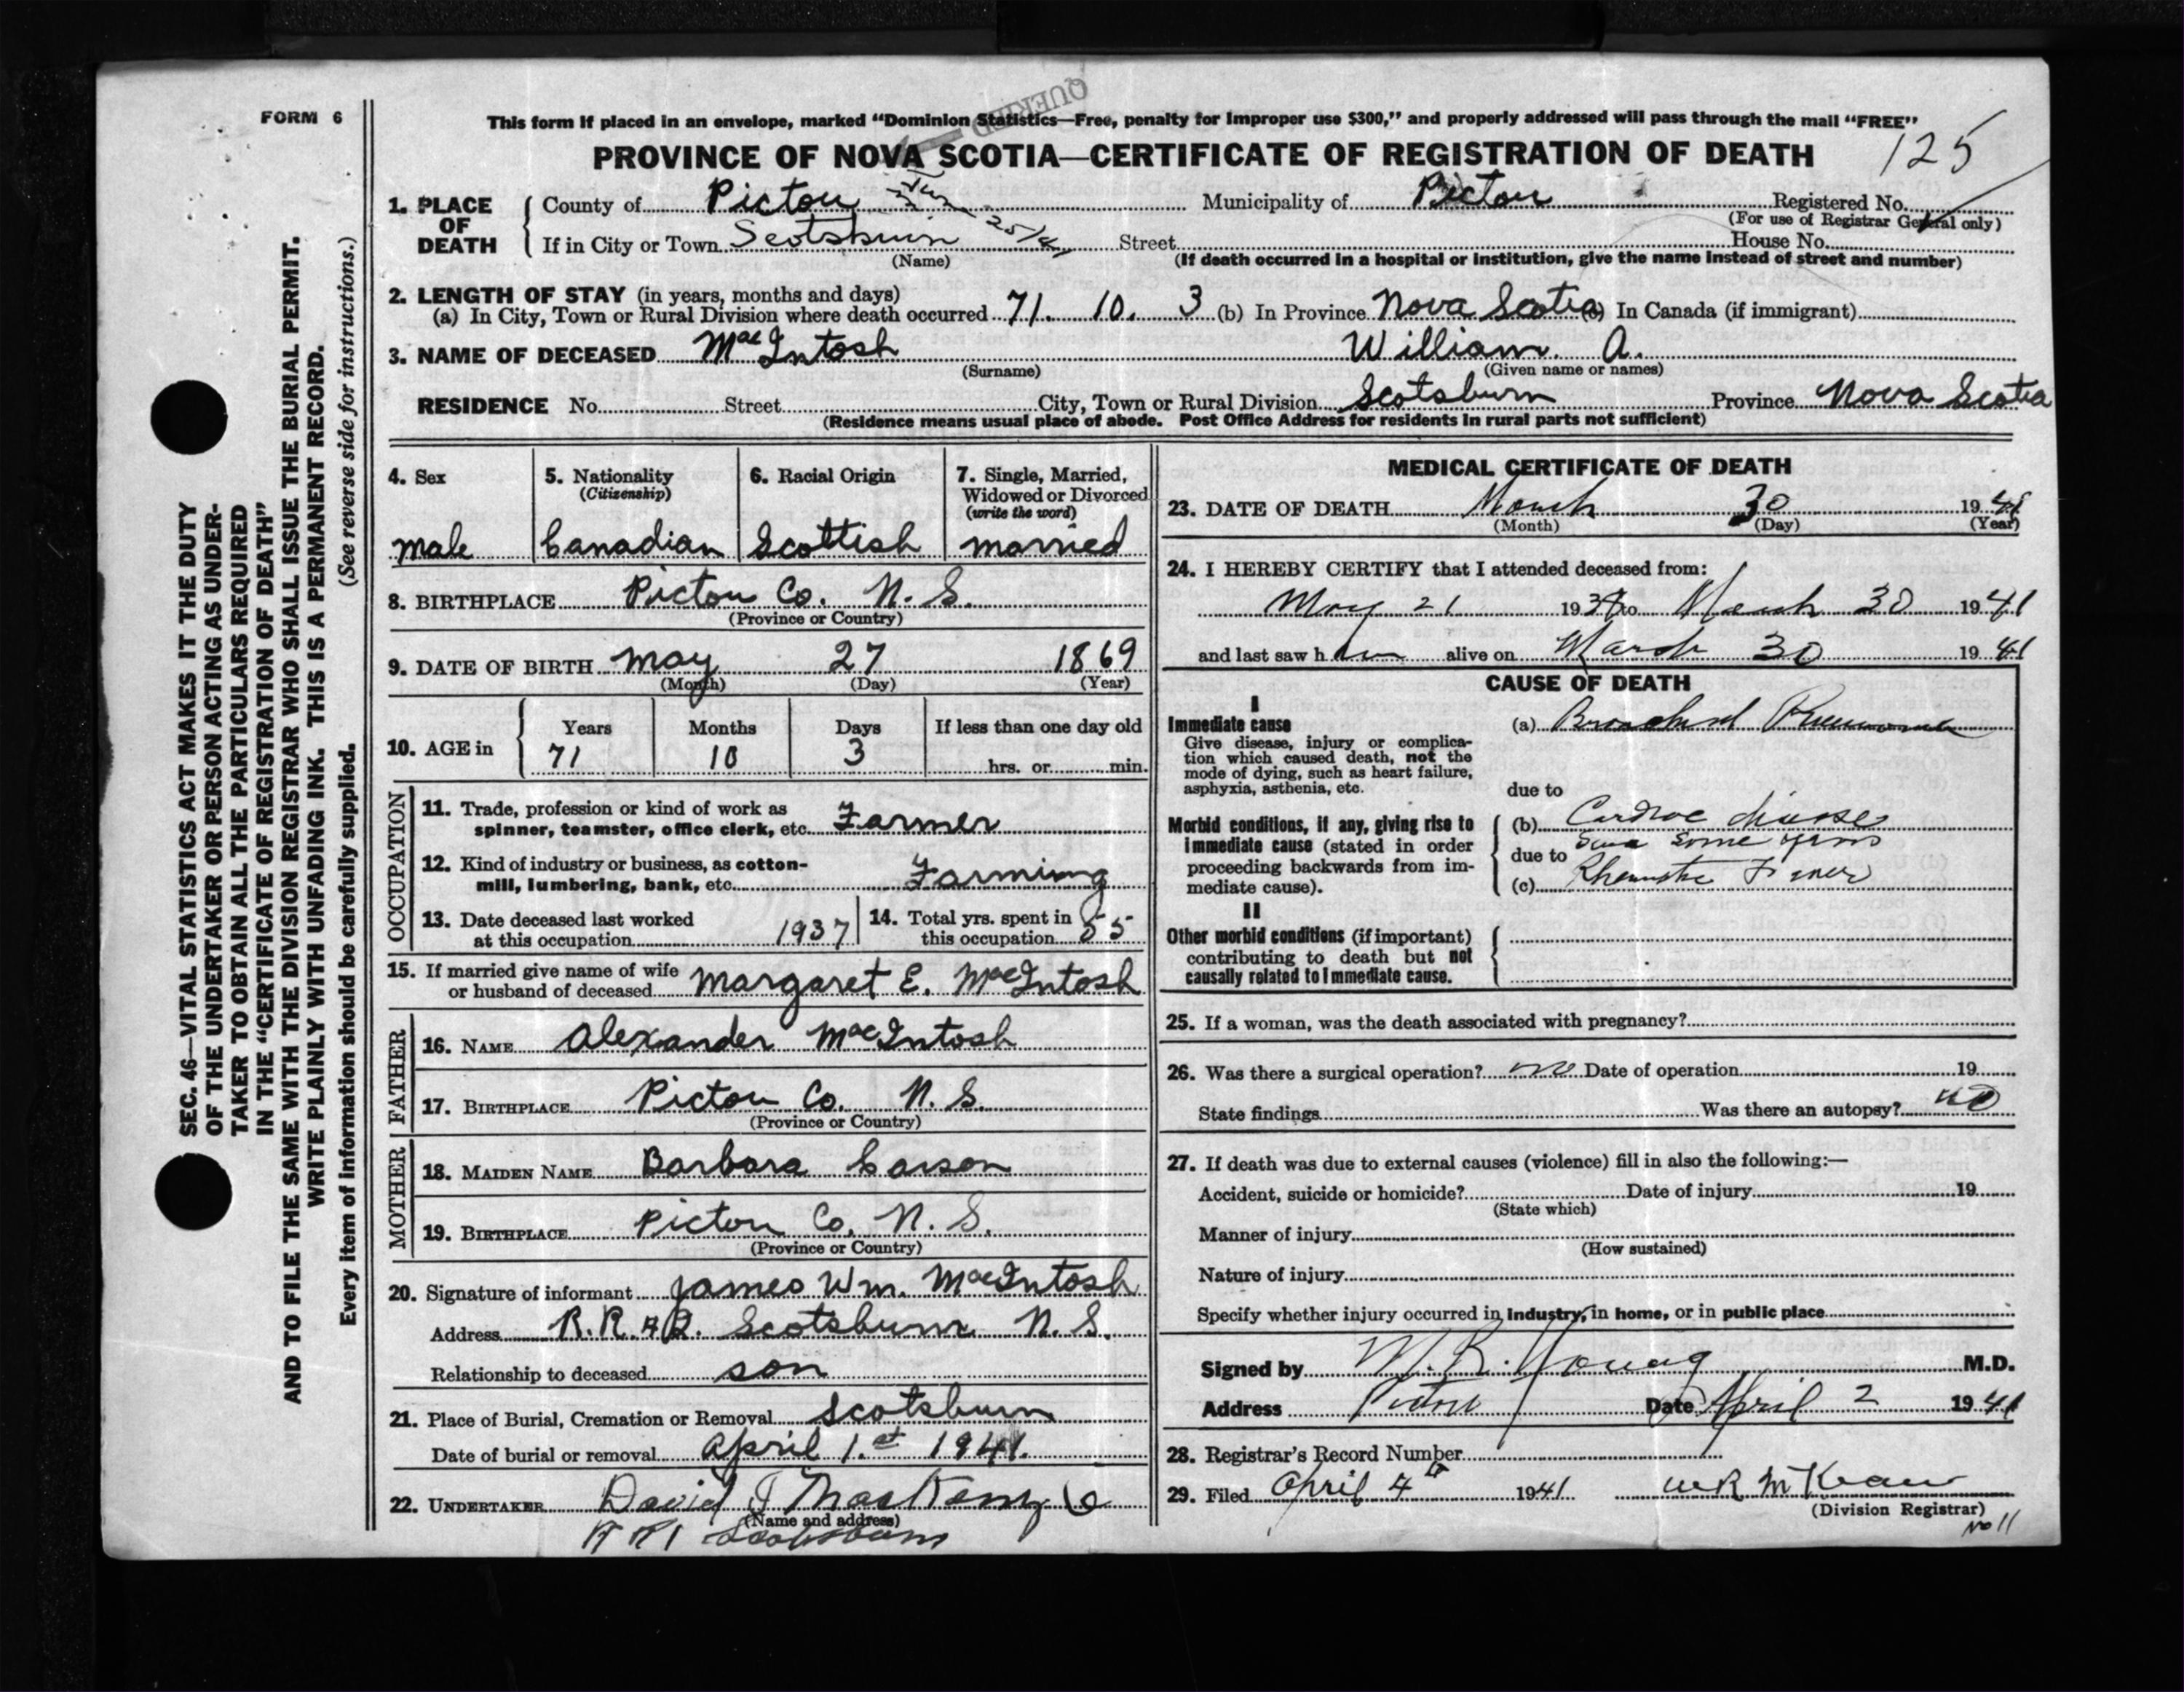 FORM 6
QUERIED
This form if placed in an envelope, marked “Dominion Statistics—Free, penalty for improper use $300,” and properly addressed will pass through the mail “FREE”
PROVINCE OF NOVA SCOTIA—CERTIFICATE OF REGISTRATION OF DEATH
125
SEC. 46—VITAL STATISTICS ACT MAKES IT THE DUTY
OF THE UNDERTAKER OR PERSON ACTING AS UNDER-
TAKER TO OBTAIN ALL THE PARTICULARS REQUIRED
IN THE “CERTIFICATE OF REGISTRATION OF DEATH”
AND TO FILE THE SAME WITH THE DIVISION REGISTRAR WHO SHALL ISSUE THE BURIAL PERMIT.
WRITE PLAINLY WITH UNFADING INK. THIS IS A PERMANENT RECORD.
Every item of information should be carefully supplied. (See reverse side for instructions.)
1. PLACE OF DEATH
County of Pictou Municipality of Pictou Registered No.
(For use of Registrar General only)
If in City or Town Scotsburn 25/4 Street House No.
(Name) (If death occurred in a hospital or institution, give the name instead of street and number)
2. LENGTH OF STAY (in years, months and days)
(a) In City, Town or Rural Division where death occurred 71. 10. 3 (b) In Province Nova Scotia (c) In Canada (if immigrant)
3. NAME OF DECEASED MacIntosh William. A.
(Surname) (Given name or names)
RESIDENCE No. Street City, Town or Rural Division Scotsburn Province Nova Scotia
(Residence means usual place of abode. Post Office Address for residents in rural parts not sufficient)
4. Sex
male
5. Nationality
(Citizenship)
Canadian
6. Racial Origin
Scottish
7. Single, Married,
Widowed or Divorced
(write the word)
married
8. BIRTHPLACE Pictou Co. N. S.
(Province or Country)
9. DATE OF BIRTH May 27 1869
(Month) (Day) (Year)
10. AGE in
Years Months Days If less than one day old
71 10 3 hrs. or min.
OCCUPATION
11. Trade, profession or kind of work as
spinner, teamster, office clerk, etc. Farmer
12. Kind of industry or business, as cotton-
mill, lumbering, bank, etc. Farming
13. Date deceased last worked
at this occupation 1937
14. Total yrs. spent in
this occupation 55
15. If married give name of wife
or husband of deceased Margaret E. MacIntosh
FATHER
16. NAME Alexander MacIntosh
17. BIRTHPLACE Pictou Co. N. S.
(Province or Country)
MOTHER
18. MAIDEN NAME Barbara Carson
19. BIRTHPLACE Pictou Co. N. S.
(Province or Country)
20. Signature of informant James Wm. MacIntosh
Address R.R. #2. Scotsburn N. S.
Relationship to deceased son
21. Place of Burial, Cremation or Removal Scotsburn
Date of burial or removal April 1.st 1941.
22. UNDERTAKER David
(Name and address)
Scotsburn
MEDICAL CERTIFICATE OF DEATH
23. DATE OF DEATH March 30 1941
(Month) (Day) (Year)
24. I HEREBY CERTIFY that I attended deceased from:
May 21 1938 to March 30 1941
and last saw him alive on March 30 1941
CAUSE OF DEATH
I
Immediate cause
Give disease, injury or complica-
tion which caused death, not the
mode of dying, such as heart failure,
asphyxia, asthenia, etc.
(a) Bronchial Pneumonia
due to
Morbid conditions, if any, giving rise to
immediate cause (stated in order
proceeding backwards from im-
mediate cause).
(b) Cardiac disease
due to some years
(c) Rheumatic Fever
II
Other morbid conditions (if important)
contributing to death but not
causally related to immediate cause.
25. If a woman, was the death associated with pregnancy?
26. Was there a surgical operation? no Date of operation 19
State findings Was there an autopsy? no
27. If death was due to external causes (violence) fill in also the following:—
Accident, suicide or homicide? Date of injury 19
(State which)
Manner of injury
(How sustained)
Nature of injury
Specify whether injury occurred in industry, in home, or in public place
Signed by M. R. Young M.D.
Address Pictou Date April 2 1941
28. Registrar’s Record Number
29. Filed April 4th 1941 WR McKean
(Division Registrar)
No 11